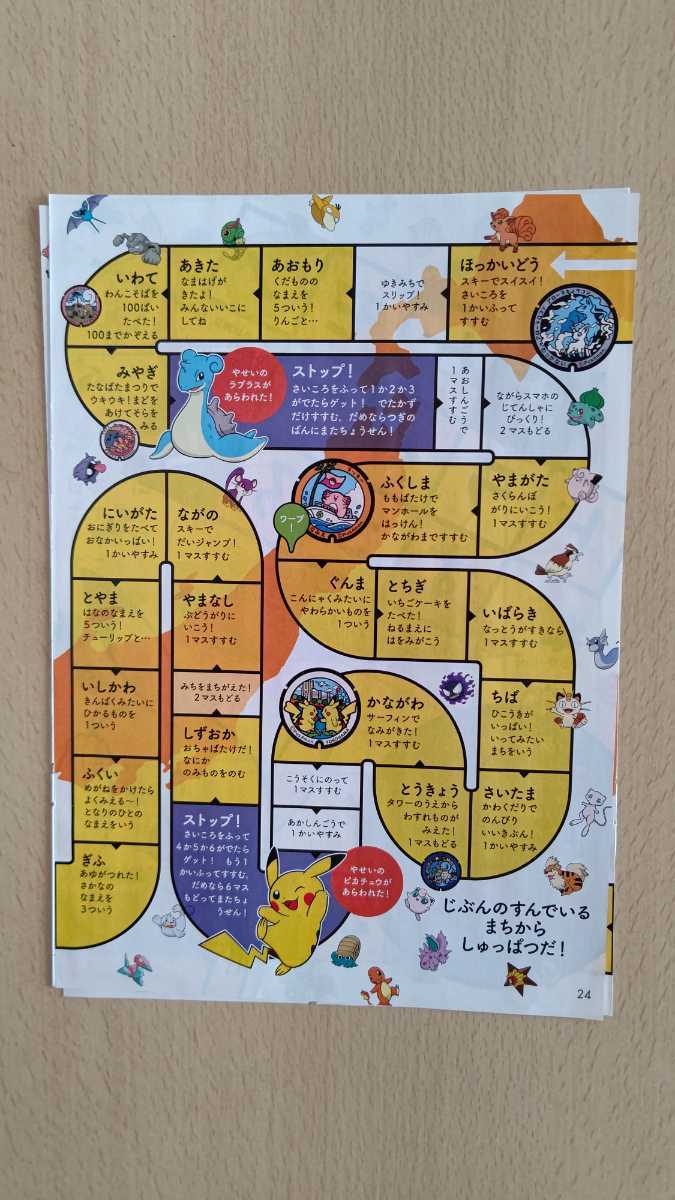 ほっかいどう
スキーでスイスイ！
さいころを
１かいふって
すすむ
ゆきみちで
スリップ！
１かいやすみ
あおもり
くだものの
なまえを
５ついう！
りんごと…
あきた
なまはげが
きたよ！
みんないいこに
してね
いわて
わんこそばを
100ぱい
たべた！
100までかぞえる
みやぎ
たなばたまつりで
ウキウキ！まどを
あけてそらを
みる
やせいの
ラプラスが
あらわれた！
ストップ！
さいころをふって１か２か３
がでたらゲット！　でたかず
だけすすむ。だめならつぎの
ばんにまたちょうせん！
あおしんごうで
１マスすすむ
ながらスマホの
じてんしゃに
びっくり！
２マスもどる
やまがた
さくらんぼ
がりにいこう！
１マスすすむ
ふくしま
ももばたけで
マンホールを
はっけん！
かながわまですすむ
ワープ
！
ぐんま
こんにゃくみたいに
やわらかいものを
１ついう
とちぎ
いちごケーキを
たべた！
ねるまえに
はをみがこう
いばらき
なっとうがすきなら
１マスすすむ
ちば
ひこうきが
いっぱい！
いってみたい
まちをいう
さいたま
かわくだりで
のんびり
いいきぶん！
１かいやすみ
とうきょう
タワーのうえから
わすれものが
みえた！
１マスもどる
かながわ
サーフィンで
なみがきた！
１マスすすむ
こうそくにのって
１マスすすむ
あかしんごうで
１かいやすみ
やせいの
ピカチュウが
あらわれた！
ストップ！
さいころをふって
４か５か６がでたら
ゲット！　もう１
かいふってすすむ。
だめなら６マス
もどってまたちょ
うせん！
しずおか
おちゃばたけだ！
なにか
のみものをのむ
みちをまちがえた！
２マスもどる
やまなし
ぶどうがりに
いこう！
１マスすすむ
ながの
スキーで
だいジャンプ！
１マスすすむ
にいがた
おにぎりをたべて
おなかいっぱい！
１かいやすみ
とやま
はなのなまえを
５ついう！
チューリップと…
いしかわ
きんぱくみたいに
ひかるものを
１ついう
ふくい
めがねをかけたら
よくみえる〜！
となりのひとの
なまえをいう
ぎふ
あゆがつれた！
さかなの
なまえを
３ついう
じぶんのすんでいる
まちから
しゅっぱつだ！
24